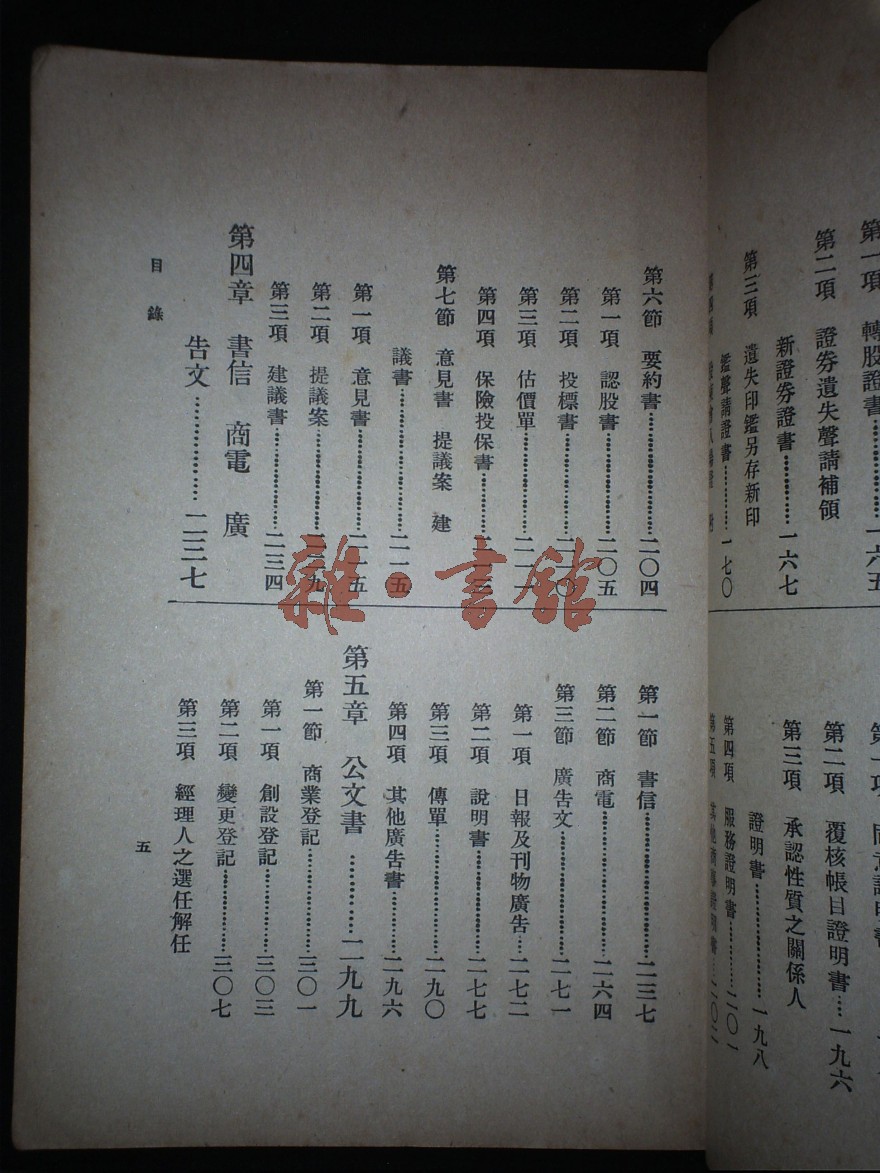 第一項 轉股證書……一六五
第二項 證券遺失聲請補領
新證券證書…………一六七
第三項 遺失印鑑另存新印
鑑聲請證書…………一七〇
第二項 覆核帳目證明書……一九六
第三項 承認性質之關係人
證明書…………一九八
第四項 服務證明書…………二〇一
第六節 要約書…………二〇四
第一項 認股書…………二〇五
第二項 投標書…………二一〇
第三項 估價單…………二一一
第四項 保險投保書…………二一三
第七節 意見書 提議案 建
議書…………二一五
第一項 意見書…………二一五
第二項 提議案…………二一九
第三項 建議書…………二三四
第四章 書信 商電 廣
告文…………二三七
第一節 書信…………二三七
第二節 商電…………二六四
第三節 廣告文…………二七一
第一項 日報及刊物廣告……二七二
第二項 說明書…………二七七
第三項 傳單…………二九〇
第四項 其他廣告書…………二九六
第五章 公文書…………二九九
第一節 商業登記…………三〇一
第一項 創設登記…………三〇三
第二項 變更登記…………三〇七
第三項 經理人之選任解任
目錄
五
雜·書館